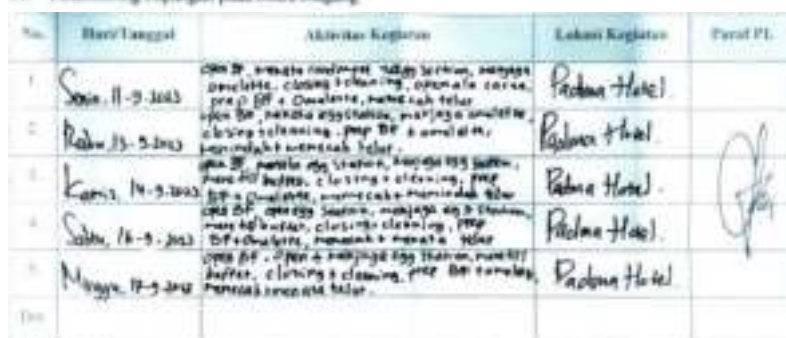 No. Hari/Tanggal Aktivitas Kegiatan Lokasi Kegiatan Paraf PL
1 Senin, 11-9-2023 open BF, menata condiment egg section, menjaga Padma Hotel
omelette, closing + cleaning,
prep BF + Omelette, memecah telur
2 Rabu, 13-9-2023 open BF, menata egg station, menjaga omelette, Padma Hotel
closing + cleaning, prep BF + omelette,
memindah + memecah telur.
3 Kamis, 14-9-2023 open BF, menata egg station, menjaga egg station, Padma Hotel
buffet, closing + cleaning, prep
BF + Omelette, memecah + memindah telur
4 Sabtu, 16-9-2023 open BF, open egg station, menjaga egg station, Padma Hotel
buffet, closing + cleaning, prep
BF + Omelette, memecah + menata telur
5 Minggu, 17-9-2023 open BF, open + menjaga egg station, Padma Hotel
buffet, closing + cleaning, prep BF
memecah menata telur.